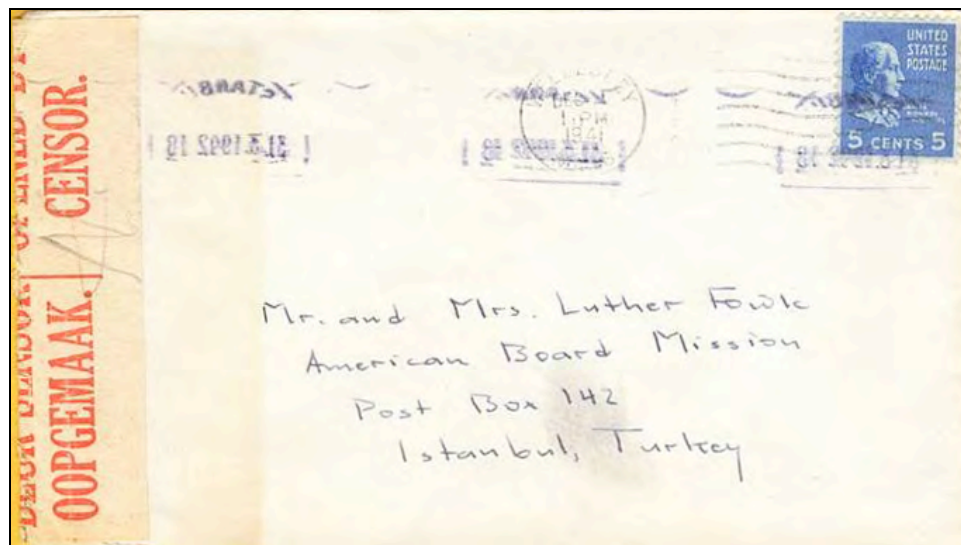 DEUR SENSOR OPENED BY
OOPGEMAAK. CENSOR.
1 PM
1941
UNITED
STATES
POSTAGE
5 CENTS 5
Mr. and Mrs. Luther Fowle
American Board Mission
Post Box 142
Istanbul, Turkey